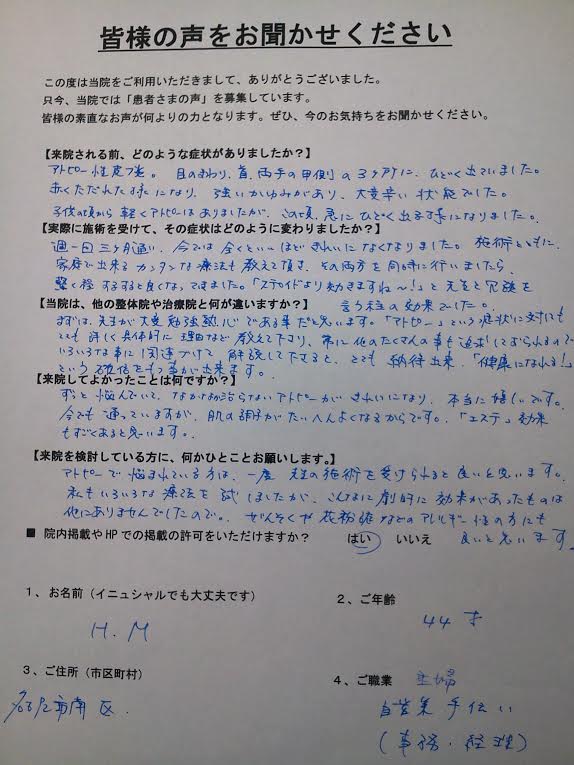 皆様の声をお聞かせください
この度は当院をご利用いただきまして、ありがとうございました。
只今、当院では「患者さまの声」を募集しています。
皆様の素直なお声が何よりの力となります。ぜひ、今のお気持ちをお聞かせください。
【来院される前、どのような症状がありましたか？】
アトピー性皮フ炎。目のまわり、首、両手の甲側の3ヶ所に、ひどく出ていました。
赤くただれた様になり、強いかゆみがあり、大変辛い状態でした。
子供の頃から軽くアトピーはありましたが、この頃、急にひどく出る様になりました。
【実際に施術を受けて、その症状はどのように変わりましたか？】
週一回三ヶ月通い、今では全くといいほどきれいになくなりました。施術とともに、
家庭で出来るカンタンな療法も教えて頂き、その両方を同時に行いましたら、
驚く程するすると良くなってきました。「ステロイドより効きますね～!」と先生と冗談を
【当院は、他の整体院や治療院と何が違いますか？】
言う程の効果でした。
まずは、先生が大変勉強熱心である事だと思います。「アトピー」という症状に対しても
とても詳しく具体的に理由など教えて下り、常に他のたくさんの事も追求しておられるので
いろいろな事に関連づけて解説して下さると、とても納得出来、「健康になれる!」
という確信をもつ事が出来ます。
【来院してよかったことは何ですか？】
ずっと悩んでいて、なかなか治らないアトピーがきれいになり、本当に嬉しいです。
今でも通っていますが、肌の調子がたいへんよくなるからです。「エステ」効果
もすごくあると思います。
【来院を検討している方に、何かひとことお願いします。】
アトピーで悩まれている方は、一度先生の施術を受けられると良いと思います。
私もいろいろな療法を試しましたが、こんなに劇的に効果があったものは
他にありませんでしたので。ぜんそくや花粉症などのアレルギー性の方にも
良いと思います。
■ 院内掲載やHPでの掲載の許可をいただけますか？ はい いいえ
1、お名前（イニュシャルでも大丈夫です）
H.M
2、ご年齢
44才
3、ご住所（市区町村）
名古屋市南区.
4、ご職業 主婦
自営業手伝い
(事務・経理)